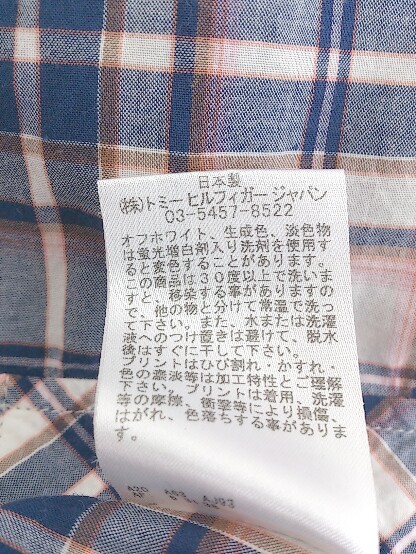 日本製
(株)トミー ヒルフィガー ジャパン
03-5457-8522
オフホワイト、生成色、淡色物
は蛍光増白剤入り洗剤を使用す
ると変色することがあります。
この商品は30度以上で洗いま
すと、移染する事がありますの
で、他の物と分けて常温で洗っ
て下さい。また、水または洗濯
液へのつけ置きは避けて、脱水
後はすぐに干して下さい。
プリントはひび割れ・かすれ・
色の濃淡等は加工特性とご理解
下さい。プリントは着用、洗濯
等の摩擦、衝撃等により損傷、
はがれ、色落ちする事がありま
す。